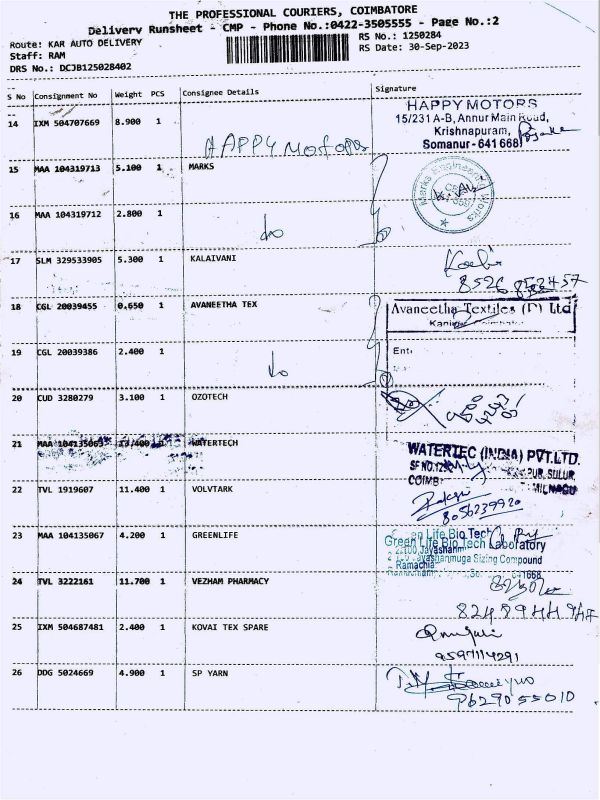 THE PROFESSIONAL COURIERS, COIMBATORE
Delivery Runsheet - CMP - Phone No.:0422-3505555 - Page No.:2
Route: KAR AUTO DELIVERY
RS No.: 1250284
Staff: RAM
RS Date: 30-Sep-2023
DRS No.: DCJB125028402
S No Consignment No Weight PCS Consignee Details Signature
14 IXM 504707669 8.900 1
HAPPY MOTORS
HAPPY MOTORS
15/231 A-B, Annur Main Road,
Krishnapuram,
Somanur - 641 668
15 MAA 104319713 5.100 1 MARKS
Marks Engineering Works
16 MAA 104319712 2.800 1
do
17 SLM 329533905 5.300 1 KALAIVANI
18 CGL 20039455 0.650 1 AVANEETHA TEX
Avaneetha Textiles (P) Ltd
19 CGL 20039386 2.400 1
do
20 CUD 3280279 3.100 1 OZOTECH
21 MAA 104135063 1 WATERTECH
WATERTEC (INDIA) PVT.LTD.
22 TVL 1919607 11.400 1 VOLVTARK
8056239920
23 MAA 104135067 4.200 1 GREENLIFE
Green Life Bio Tech Laboratory
Jayashanmuga Sizing Compound
24 TVL 3222161 11.700 1 VEZHAM PHARMACY
25 IXM 504687481 2.400 1 KOVAI TEX SPARE
9597114291
26 DDG 5024669 4.900 1 SP YARN
9629055010